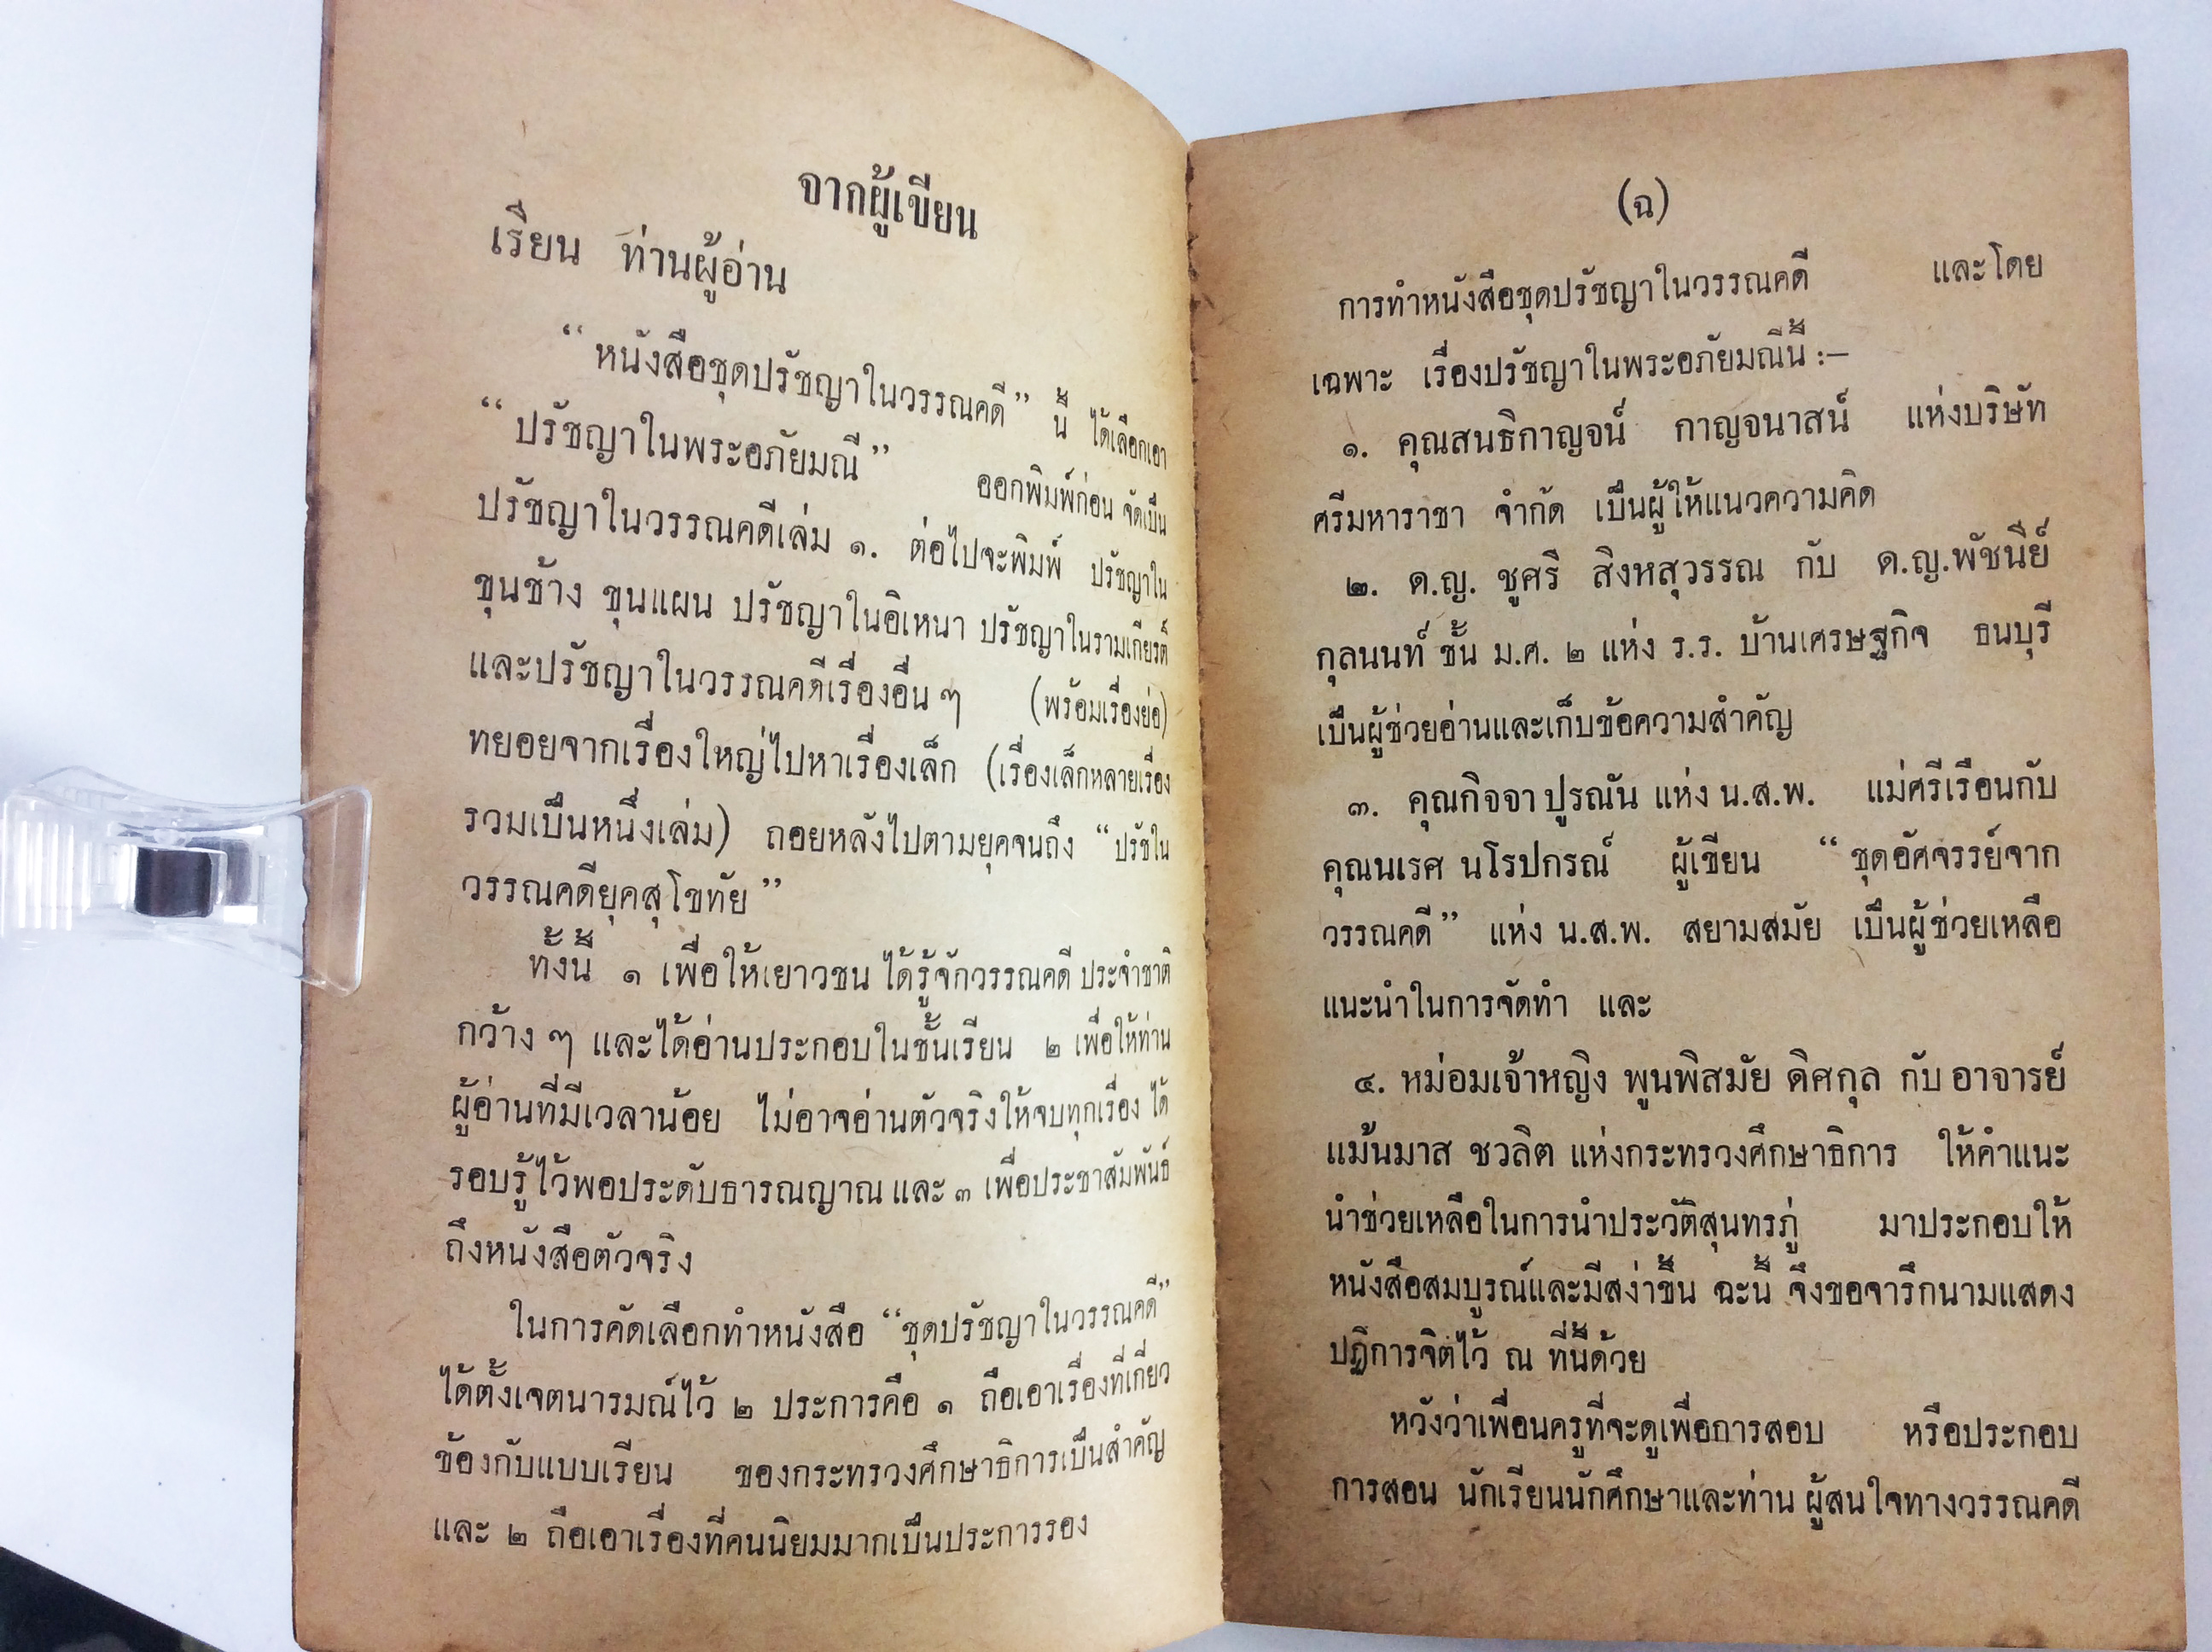 จากผู้เขียน
เรียน ท่านผู้อ่าน
“ หนังสือชุดปรัชญาในวรรณคดี ” นี้ ได้เลือกเอา
“ ปรัชญาในพระอภัยมณี ” ออกพิมพ์ก่อน จัดเป็น
ปรัชญาในวรรณคดีเล่ม ๑. ต่อไปจะพิมพ์ ปรัชญาใน
ขุนช้าง ขุนแผน ปรัชญาในอิเหนา ปรัชญาในรามเกียรติ์
และปรัชญาในวรรณคดีเรื่องอื่น ๆ (พร้อมเรื่องย่อ)
ทยอยจากเรื่องใหญ่ไปหาเรื่องเล็ก (เรื่องเล็กหลายเรื่อง
รวมเป็นหนึ่งเล่ม) ถอยหลังไปตามยุคจนถึง “ ปรัชใน
วรรณคดียุคสุโขทัย ”
ทั้งนี้ ๑ เพื่อให้เยาวชน ได้รู้จักวรรณคดี ประจำชาติ
กว้าง ๆ และได้อ่านประกอบในชั้นเรียน ๒ เพื่อให้ท่าน
ผู้อ่านที่มีเวลาน้อย ไม่อาจอ่านตัวจริงให้จบทุกเรื่อง ได้
รอบรู้ไว้พอประดับธารณญาณ และ ๓ เพื่อประชาสัมพันธ์
ถึงหนังสือตัวจริง
ในการคัดเลือกทำหนังสือ “ ชุดปรัชญาในวรรณคดี ”
ได้ตั้งเจตนารมณ์ไว้ ๒ ประการคือ ๑ ถือเอาเรื่องที่เกี่ยว
ข้องกับแบบเรียน ของกระทรวงศึกษาธิการเป็นสำคัญ
และ ๒ ถือเอาเรื่องที่คนนิยมมากเป็นประการรอง
(ฉ)
การทำหนังสือชุดปรัชญาในวรรณคดี และโดย
เฉพาะ เรื่องปรัชญาในพระอภัยมณีนี้ :—
๑. คุณสนธิกาญจน์ กาญจนาสน์ แห่งบริษัท
ศรีมหาราชา จำกัด เป็นผู้ให้แนวความคิด
๒. ด.ญ. ชูศรี สิงหสุวรรณ กับ ด.ญ.พัชนีย์
กุลนนท์ ชั้น ม.ศ. ๒ แห่ง ร.ร. บ้านเศรษฐกิจ ธนบุรี
เป็นผู้ช่วยอ่านและเก็บข้อความสำคัญ
๓. คุณกิจจา ปูรณัน แห่ง น.ส.พ. แม่ศรีเรือนกับ
คุณนเรศ นโรปกรณ์ ผู้เขียน “ ชุดอัศจรรย์จาก
วรรณคดี ” แห่ง น.ส.พ. สยามสมัย เป็นผู้ช่วยเหลือ
แนะนำในการจัดทำ และ
๔. หม่อมเจ้าหญิง พูนพิสมัย ดิศกุล กับ อาจารย์
แม้นมาส ชวลิต แห่งกระทรวงศึกษาธิการ ให้คำแนะ
นำช่วยเหลือในการนำประวัติสุนทรภู่ มาประกอบให้
หนังสือสมบูรณ์และมีสง่าขึ้น ฉะนี้ จึงขอจารึกนามแสดง
ปฏิการจิตไว้ ณ ที่นี้ด้วย
หวังว่าเพื่อนครูที่จะดูเพื่อการสอบ หรือประกอบ
การสอน นักเรียนนักศึกษาและท่าน ผู้สนใจทางวรรณคดี